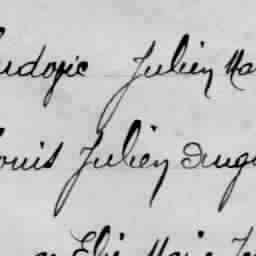 udovic Julien Ma
ouis Julien Augu
Elie Marie Ju